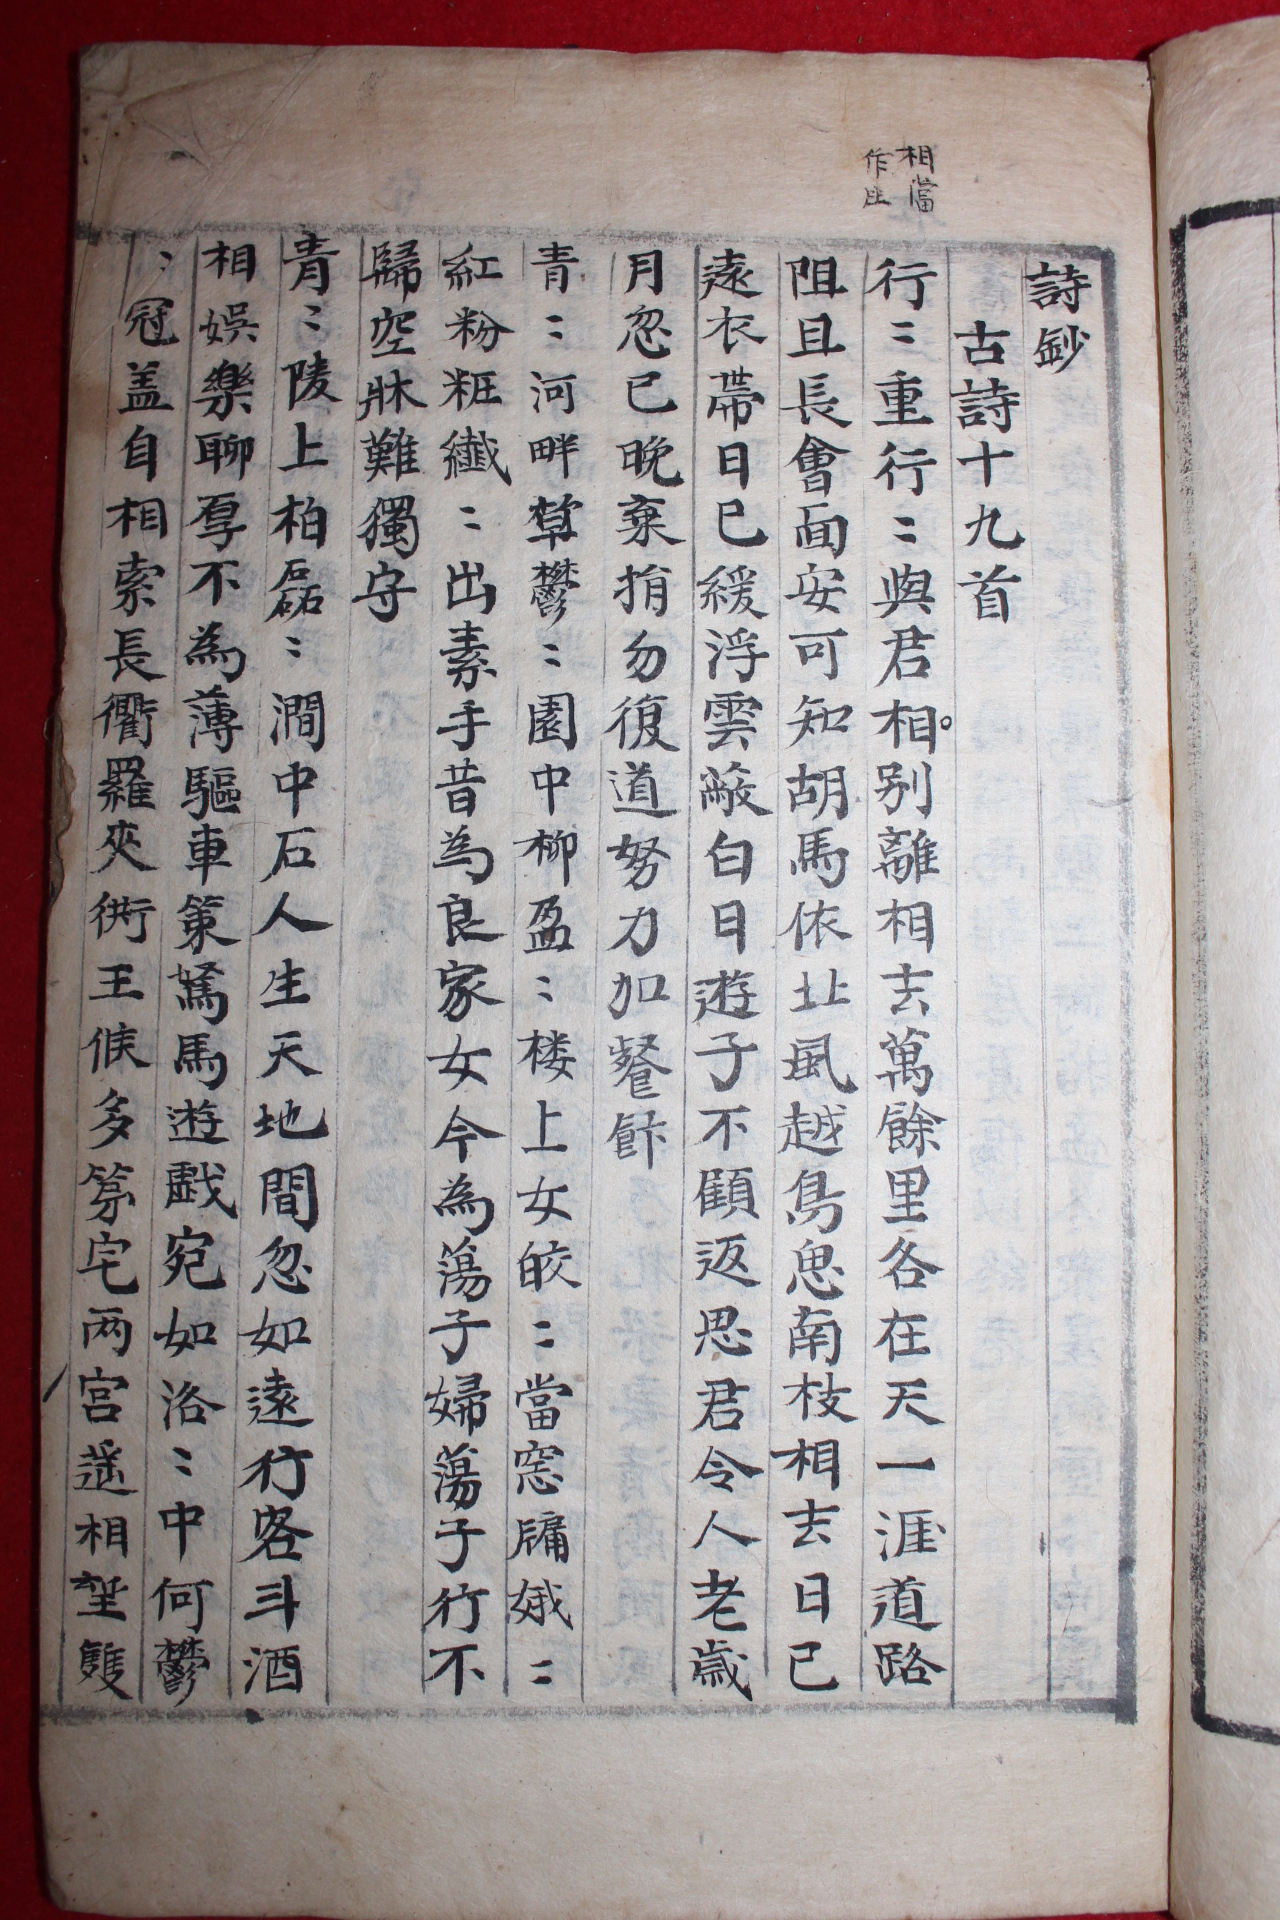 相當
作生
詩鈔
古詩十九首
行〻重行〻與君相別離相去萬餘里各在天一涯道路
阻且長會面安可知胡馬依北風越鳥思南枝相去日已
遠衣帶日已緩浮雲蔽白日遊子不顧返思君令人老歲
月忽已晚棄捐勿復道努力加餐飰
青〻河畔草鬱〻園中柳盈〻楼上女皎〻當窓牗娥〻
紅粉粧纖〻出素手昔為良家女今為蕩子婦蕩子行不
歸空牀難獨守
青〻陵上柏磊〻澗中石人生天地間忽如遠行客斗酒
相娛樂聊厚不為薄驅車策駑馬遊戯宛如洛〻中何鬱
〻冠盖自相索長衢羅夾衖王候多第宅两宮遥相望雙